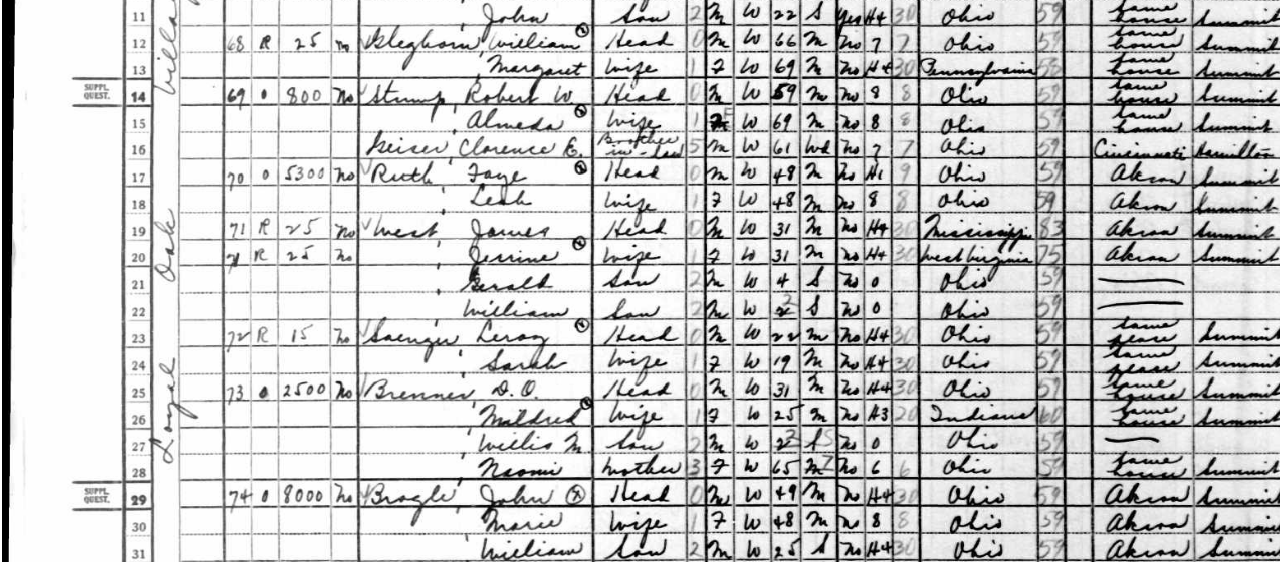 11 John Son 2 M W 22 S Yes H4 30 Ohio 59 same house Summit
12 68 R 25 no William Head 0 M W 66 M no 7 7 Ohio 59 same house Summit
13 Margaret Wife 1 F W 69 M no H4 30 Pennsylvania 58 same house Summit
SUPPL. QUEST. 14 69 0 800 No Stump, Robert W. Head 0 M W 59 M no 8 8 Ohio 59 same house Summit
15 Almeda Wife 1 F W 69 M no 8 8 Ohio 59 same house Summit
16 Keiser, Clarence E. Brother in-law 5 M W 61 Wd no 7 7 Ohio 59 Cincinnati Hamilton
17 70 0 5300 no Ruth, Faye Head 0 M W 48 M No H1 9 Ohio 59 Akron Summit
18 Leah Wife 1 F W 48 M No 8 8 Ohio 59 Akron Summit
19 71 R 25 No West, James Head 0 M W 31 M no H4 30 Mississippi 83 Akron Summit
20 71 R 25 no Wife 1 F W 31 M no H4 30 West Virginia 75 Akron Summit
21 Gerald Son 2 M W 4 S No 0 Ohio 59
22 William Son 2 M W 2 S No 0 Ohio 59
23 72 R 15 No Leroy Head 0 M W 22 M No H4 30 Ohio 59 same place Summit
24 Sarah Wife 1 F W 19 M No H4 30 Ohio 59 same place Summit
25 73 0 2500 No Brenner, D. O. Head 0 M W 31 M No H4 30 Ohio 59 same house Summit
26 Mildred Wife 1 F W 25 M no H3 20 Indiana 60 same house Summit
27 Willis M. Son 2 M W 2 S no 0 Ohio 59
28 Naomi Mother 3 F W 65 M 7 No 6 6 Ohio 59 same house Summit
SUPPL. QUEST. 29 74 0 8000 No John Head 0 M W 49 M No H4 30 Ohio 59 Akron Summit
30 Marie Wife 1 F W 48 M no 8 8 Ohio 59 Akron Summit
31 William Son 2 M W 25 S no H4 30 Ohio 59 Akron Summit
Loyal Oak Villa